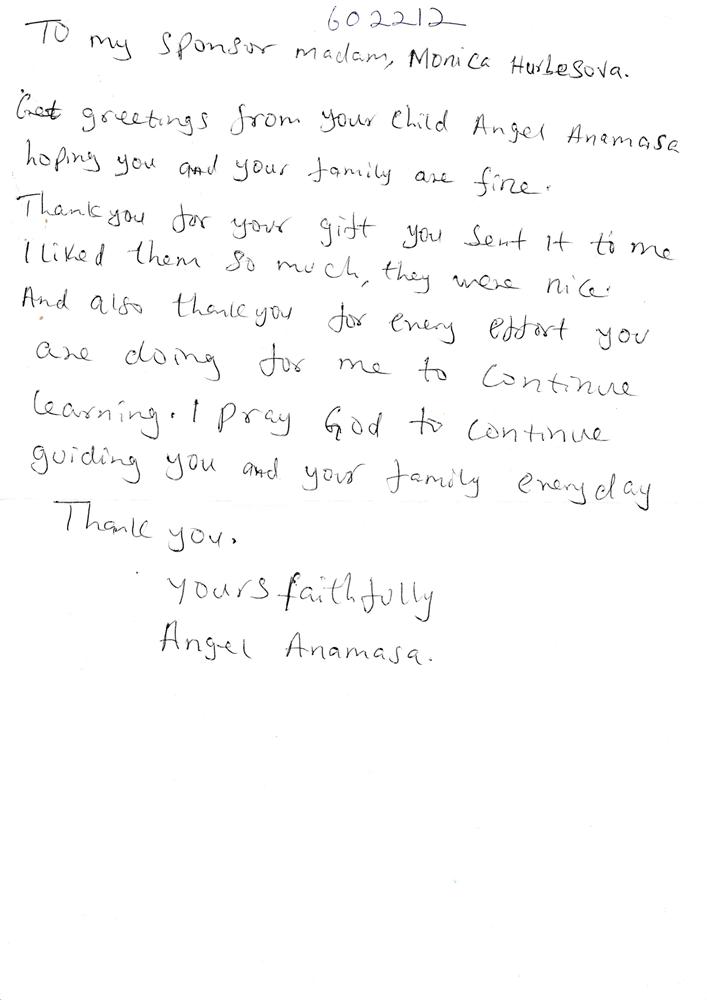 602212
To my sponsor madam, Monica Hurbesova.
Get greetings from your child Angel Anamasa
hoping you and your family are fine.
Thank you for your gift you sent it to me
I liked them so much, they were nice.
And also thank you for every effort you
are doing for me to continue
learning. I pray God to continue
guiding you and your family everyday
Thank you.
yours faithfully
Angel Anamasa.